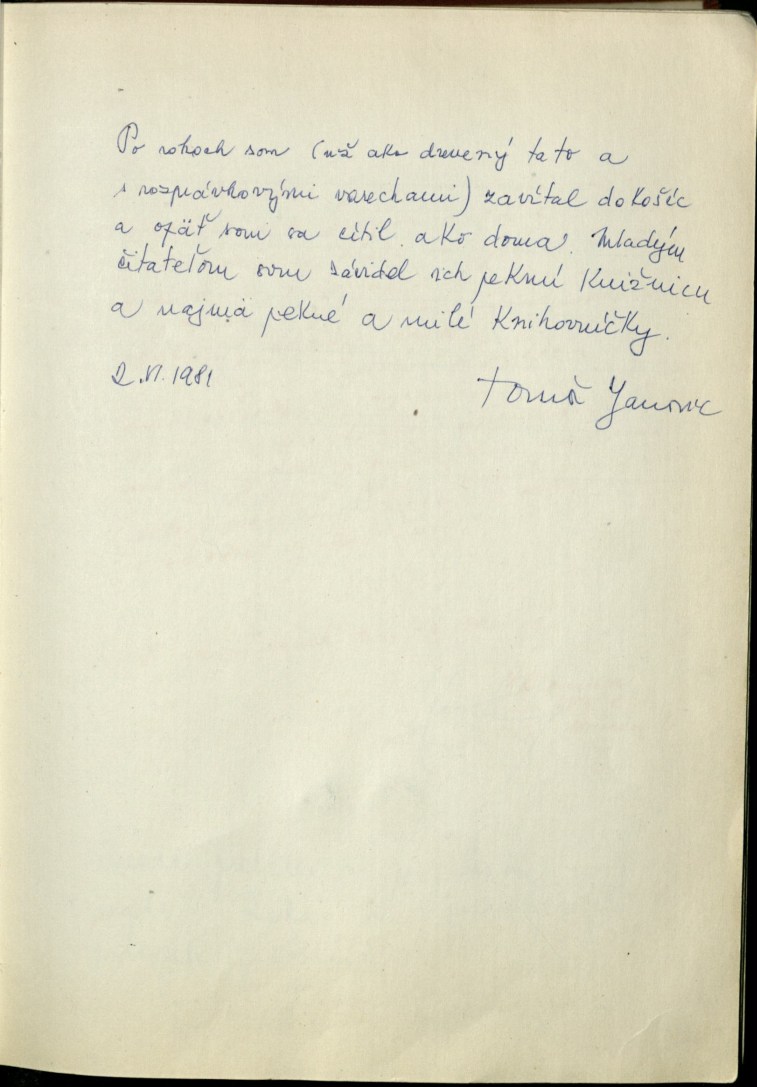 Po rokoch som (už ako drevený tato a
s rozprávkovými varechami) zavítal do Košíc
a opäť som sa cítil ako doma. Mladým
čitateľom som závidel ich peknú knižnicu
a najmä pekné a milé knihovníčky.
2.VI.1981
Tomáš Janovic